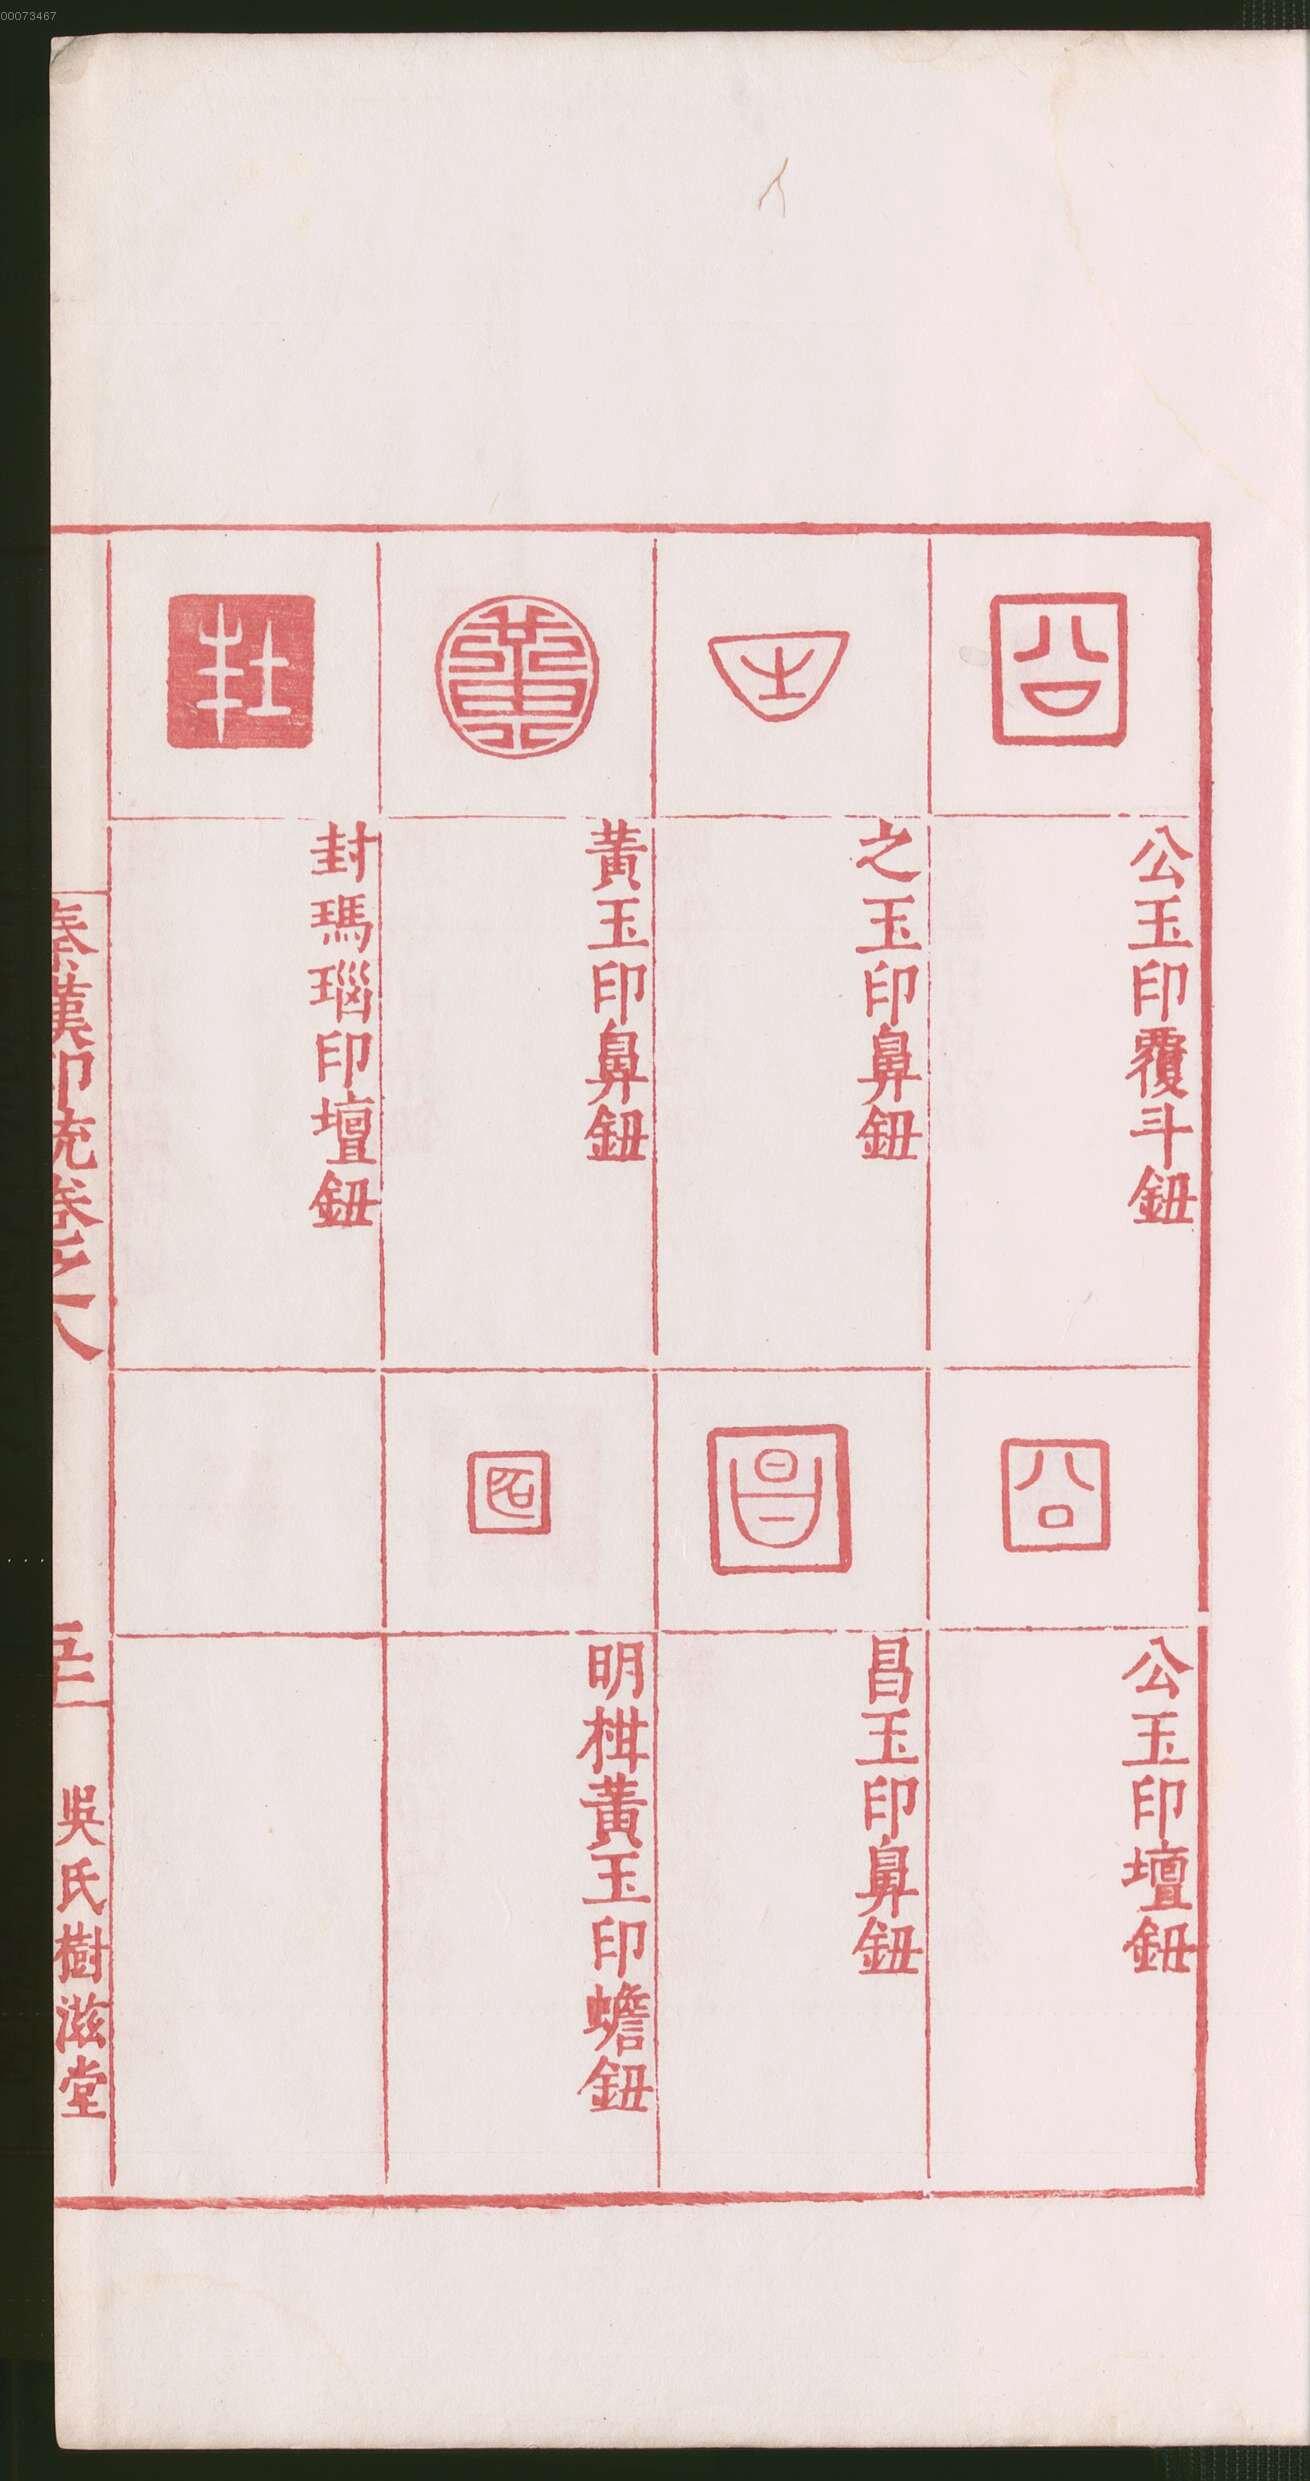 00073467
公
公玉印覆斗鈕
之
之玉印鼻鈕
黃
黃玉印鼻鈕
封
封瑪瑙印壇鈕
公
公玉印壇鈕
昌
昌玉印鼻鈕
明柑黃玉印蟾鈕
秦漢印統卷之八
五二
吳氏樹滋堂